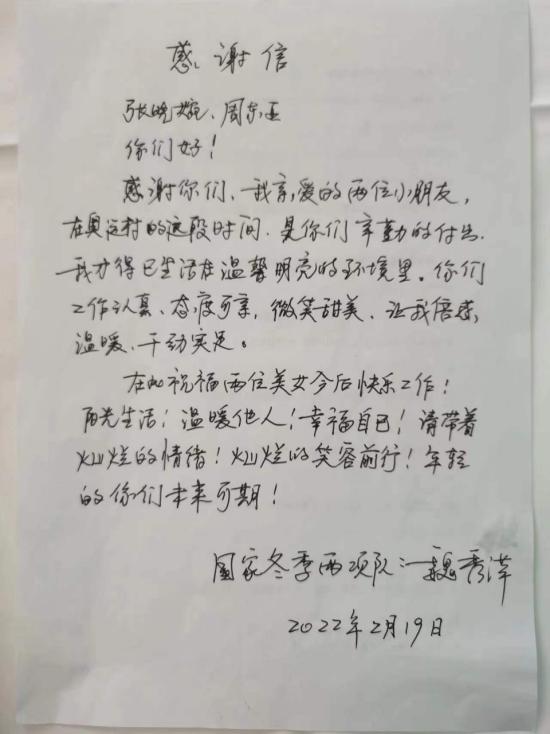 感谢信
张晓婉、周东亚
你们好！
感谢你们、我亲爱的两位小朋友，
在奥运村的这段时间．是你们辛勤的付出．
我才得已生活在温馨明亮的环境里。你们
工作认真、态度可亲，微笑甜美、让我倍感
温暖、干劲实足。
在此祝福两位美女今后快乐工作！
阳光生活！温暖他人！幸福自己！请带着
灿烂的情绪！灿烂的笑容前行！年轻
的你们未来可期！
国家冬季两项队：魏秀萍
2022年2月19日